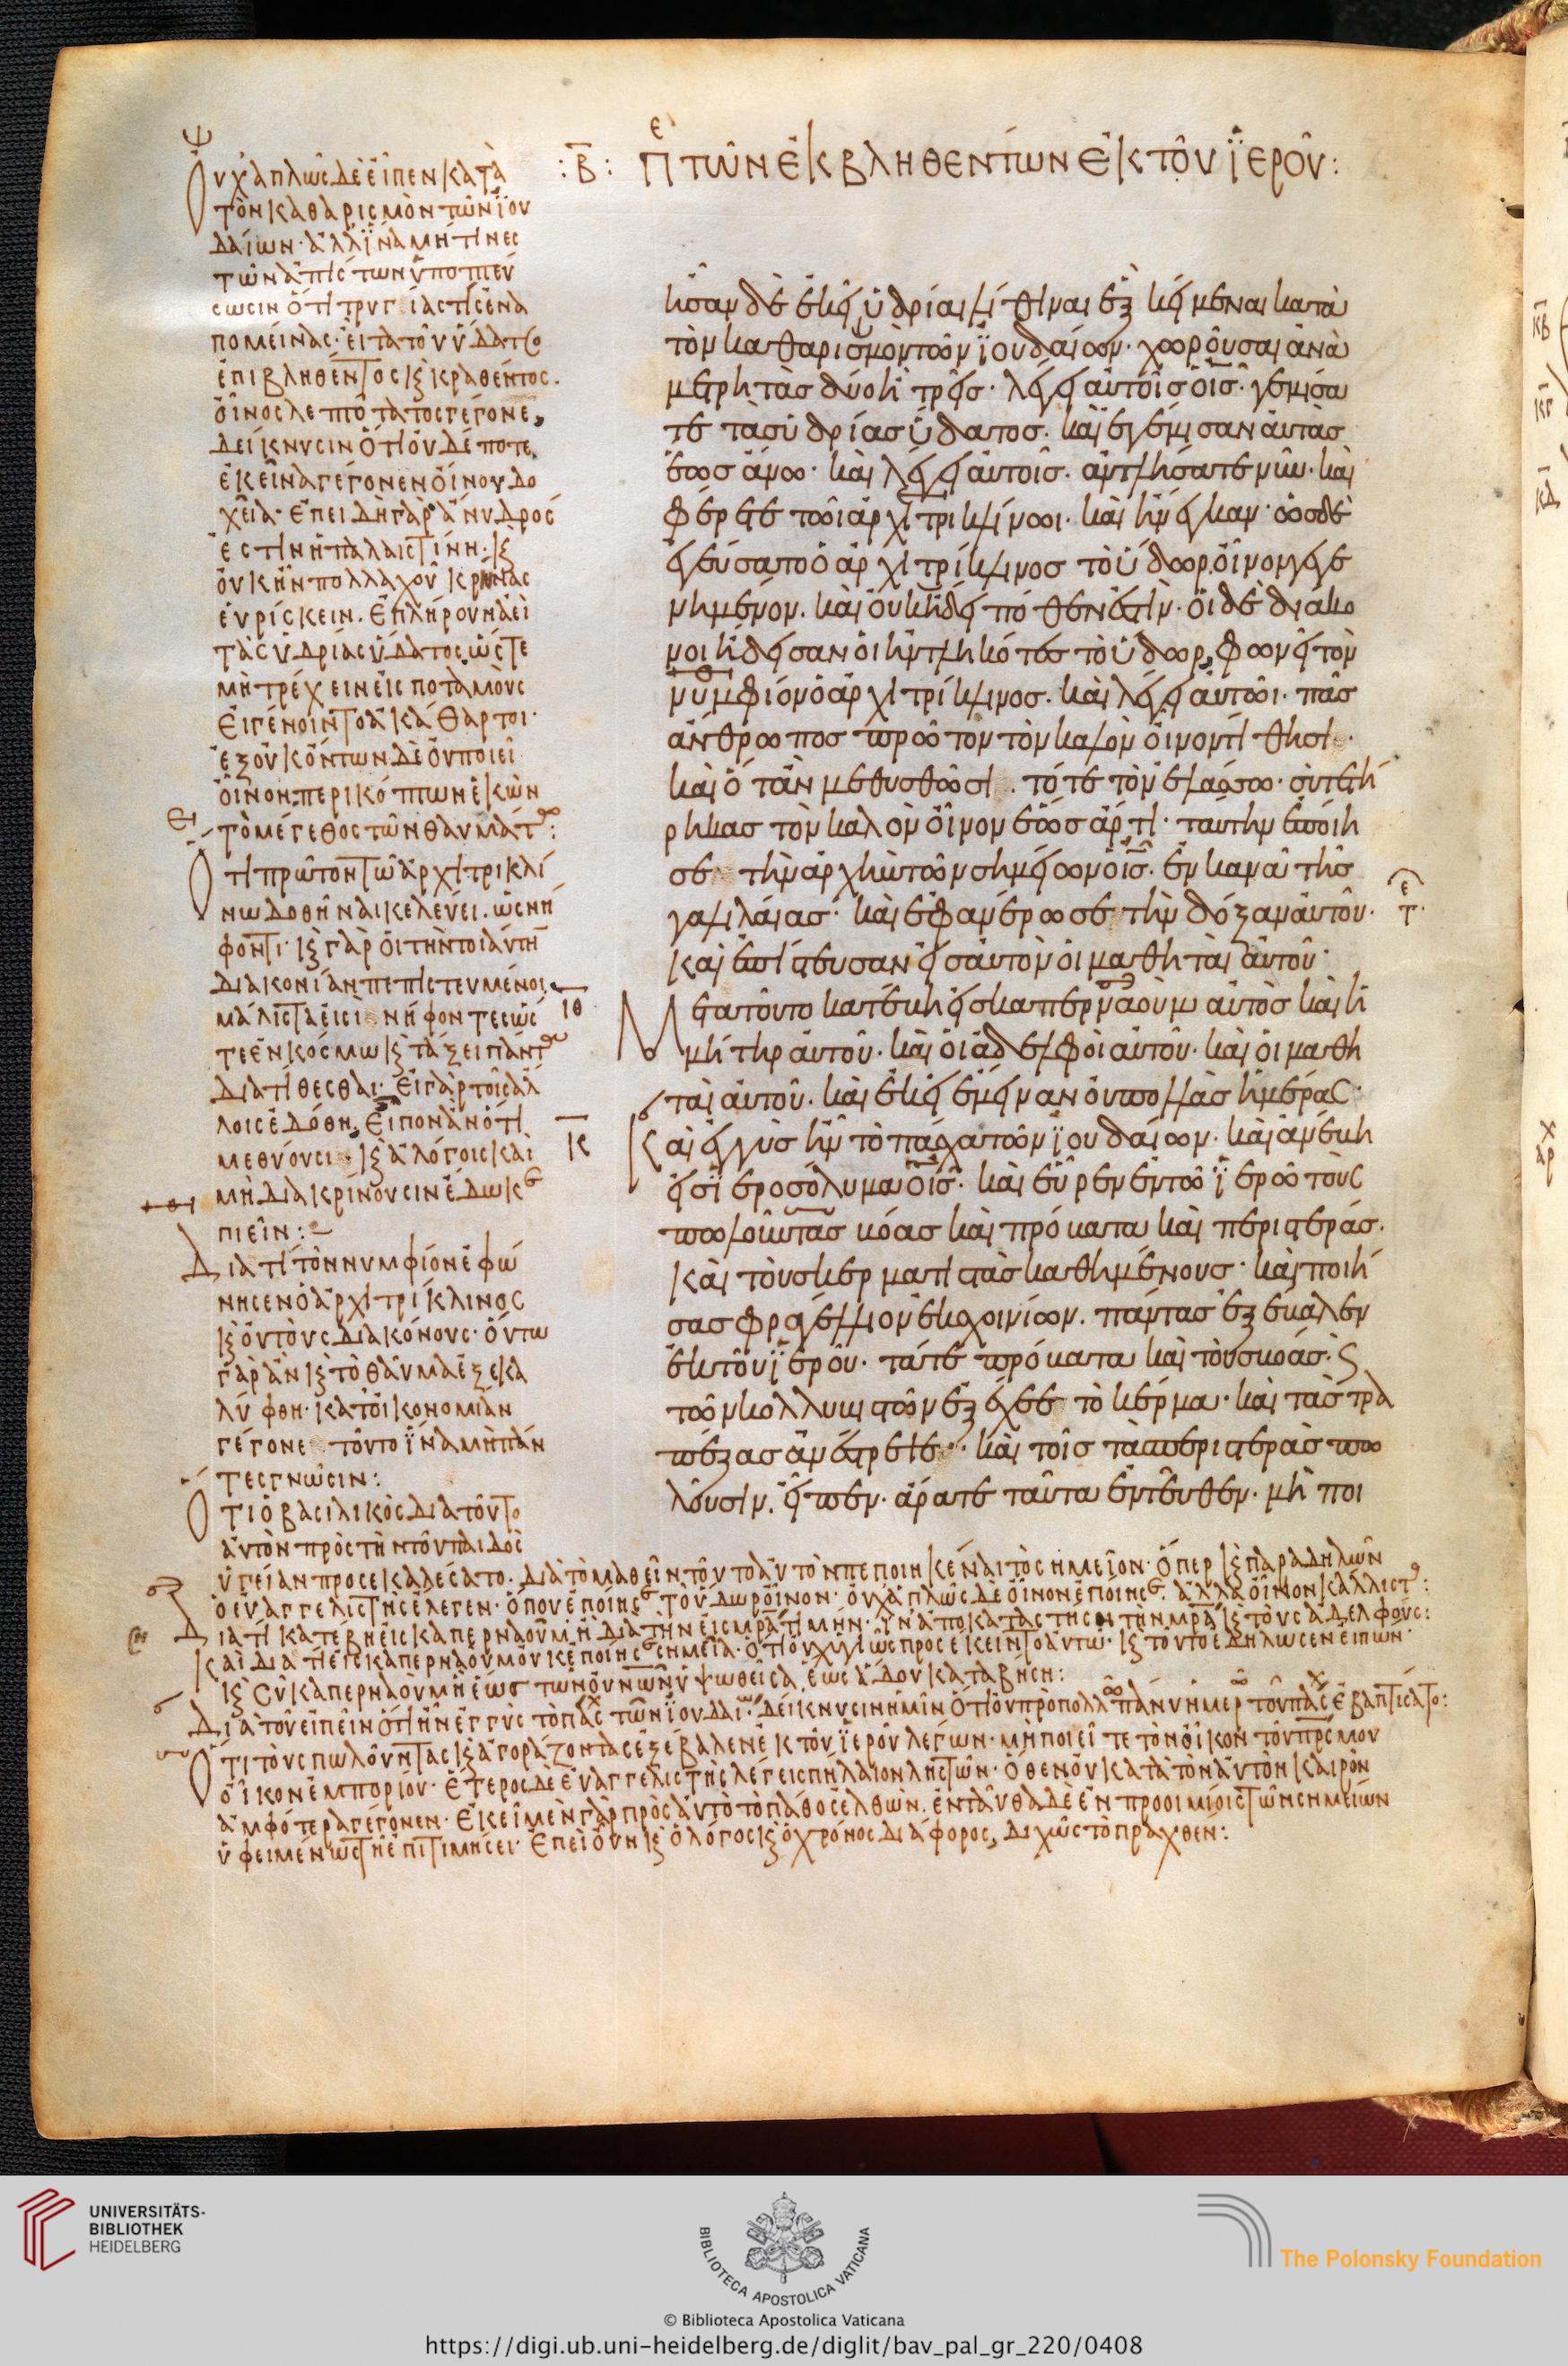 :Β: Πε τῶν ἐκβληθέντων ἐκ τοῦ ἱεροῦ:
ἦσαν δὲ ἐκεῖ ὑδρίαι λίθιναι ἓξ κείμεναι κατὰ
τὸν καθαρισμὸν τῶν ἰουδαίων· χωροῦσαι ἀνὰ
μετρητὰς δύο ἢ τρεῖς· λέγει αὐτοῖς ὁ ις· γεμίσα
τε τὰς ὑδρίας ὕδατος· καὶ ἐγέμισαν αὐτὰς
ἕως ἄνω· καὶ λέγει αὐτοῖς· ἀντλήσατε νῦν· καὶ
φέρετε τῶι ἀρχιτρικλίνωι· καὶ ἤνεγκαν· ὡς δὲ
ἐγεύσατο ὁ ἀρχιτρίκλινος τὸ ὕδωρ οἶνον γεγε
νημένον· καὶ οὐκ ἤδει πόθεν ἐστίν· οἱ δὲ διάκο
νοι ἤδεισαν οἱ ἠντληκότες τὸ ὕδωρ, φωνεῖ τὸν
νυμφίον ὁ ἀρχιτρίκλινος· καὶ λέγει αὐτῶι· πᾶς
ἄνθρωπος πρῶτον τὸν καλὸν οἶνον τίθησι·
καὶ ὅταν μεθυσθῶσι· τότε τὸν ἐλάσσω· σὺ τετή
ρηκας τὸν καλὸν οἶνον ἕως ἄρτι· ταύτην ἐποίη
σε τὴν ἀρχὴν τῶν σημείων ὁ ις· ἐν κανᾶ τῆς
γαλιλαίας· καὶ ἐφανέρωσε τὴν δόξαν αὐτοῦ·
καὶ ἐπίστευσαν εἰς αὐτὸν οἱ μαθηταὶ αὐτοῦ·
Μετὰ τοῦτο κατέβη εἰς καπερναοὺμ αὐτὸς καὶ ἡ
μήτηρ αὐτοῦ· καὶ οἱ ἀδελφοὶ αὐτοῦ· καὶ οἱ μαθη
ταὶ αὐτοῦ· καὶ ἐκεῖ ἔμειναν οὐ πολλὰς ἡμέρας·
Καὶ ἐγγὺς ἦν τὸ πάσχα τῶν ἰουδαίων· καὶ ἀνέβη
εἰς ἱεροσόλυμα ὁ ις· καὶ εὗρεν ἐν τῶ ἱερῶ τοὺς
πωλοῦντας βόας καὶ πρόβατα καὶ περιστεράς·
Καὶ τοὺς κερματιστὰς καθημένους· καὶ ποιή
σας φραγέλλιον ἐκ σχοινίων· πάντας ἐξέβαλεν
ἐκ τοῦ ἱεροῦ· τά τε πρόβατα καὶ τοὺς βόας· ϛ
τῶν κολλυβιστῶν ἐξέχεε τὸ κέρμα· καὶ τὰς τρα
πέζας ἀνέστρεψε· καὶ τοῖς τὰς περιστερὰς πω
λοῦσιν· εἶπεν· ἄρατε ταῦτα ἐντεῦθεν· μὴ ποι
ιθ
κ
Ψ
Οὐχ ἁπλῶς δὲ εἶπεν κατὰ
τὸν καθαρισμὸν τῶν ἰου
δαίων· ἀλλ' ἵνα μή τινες
τῶν ἀπίστων ὑποπτεύ
σωσιν ὅτι τρυγίας τις ἐνα
πομείνας· εἶτα τοῦ ὕδατος
ἐπιβληθέντος ϗ κραθέντος·
οἶνος λεπτότατος γέγονε,
δείκνυσιν ὅτι οὐδέποτε
ἐκεῖνα γέγονεν οἴνου δο
χεῖα· ἐπειδὴ γὰρ ἄνυδρός
ἐστιν ἡ παλαιστίνη· ϗ
οὐκ ἦν πολλαχοῦ κρήνας
εὑρίσκειν· ἐπλήρουν ἀεὶ
τὰς ὑδρίας ὕδατος, ὥστε
μὴ τρέχειν εἰς ποταμοὺς
εἰ γένοιντο ἀκάθαρτοι·
ἐξ οὐκ ὄντων δὲ οὐ ποιεῖ
οἶνον, περικόπτων ἑκὼν
τὸ μέγεθος τῶν θαυμάτ:
Ὅτι πρῶτον τῶ ἀρχιτρικλί
νω δοθῆναι κελεύει· ὡς νή
φοντι· ϗ γὰρ οἱ τὴν τοιαύτην
διακονίαν πεπιστευμένοι,
μάλιστα εἰσὶ νήφοντες ὥσ
τε ἐν κόσμω ϗ τάξει πάντ
διατίθεσθαι· εἰ γὰρ τοῖς ἄλ
λοις ἐδόθη, εἶπον ἂν ὅτι
μεθύουσι· ϗ ἀλόγοις καὶ
μὴ διακρίνουσιν ἔδωκε
πιεῖν:
Διατί τὸν νυμφίον ἐφώ
νησεν ὁ ἀρχιτρίκλινος
ϗ οὐ τοὺς διακόνους· οὕτω
γὰρ ἂν ϗ τὸ θαῦμα ἐξεκα
λύφθη· κατ' οἰκονομίαν
γέγονε τοῦτο ἵνα μὴ πάν
τες γνῶσιν:
Ὅτι ὁ βασιλικὸς διὰ τοῦτο
αὐτὸν πρὸς τὴν τοῦ παιδὸς
ὑγείαν προσεκαλέσατο· διὰ τὸ μαθεῖν τοῦτο αὐτὸν πεποιηκέναι τὸ σημεῖον· ὅπερ ϗ παραδηλῶν
ὁ εὐαγγελιστὴς ἔλεγεν· ὅπου ἐποίησε τὸ ὕδωρ οἶνον· οὐχ ἁπλῶς δὲ οἶνον ἐποίησε· ἀλλὰ οἶνον κάλλιστ:
Διατί κατέβη εἰς καπερναοῦμ, ἢ διὰ τὴν εἰς μρα τιμήν· ἵν' ἀποκαταστήση τὴν μρα ϗ τοὺς ἀδελφούς:
Καὶ διατί εἰς καπερναοὺμ οὐκ ἐποίησε σημεῖα· ὅτι οὐχ ὑγιῶς προσέκειντο αὐτῶ· ϗ τοῦτο ἐδήλωσεν εἰπών·
ϗ σὺ καπερναοὺμ ἡ ἕως τῶν οὐνῶν ὑψωθεῖσα, ἕως ἅδου καταβήση:
Διὰ τοῦ εἰπεῖν ὅτι ἦν ἐγγὺς τὸ πάσχ τῶν ἰουδαί· δείκνυσιν ἡμῖν ὅτι οὐ πρὸ πολλ πάνυ ἡμερ τοῦ πάσχ ἐβαπτίσατο:
Ὅτι τοὺς πωλοῦντας ϗ ἀγοράζοντας ἐξέβαλεν ἐκ τοῦ ἱεροῦ λέγων· μὴ ποιεῖτε τὸν οἶκον τοῦ πρς μου
οἶκον ἐμπορίου· ἕτερος δὲ εὐαγγελιστὴς λέγει σπήλαιον ληστῶν· ὅθεν οὐ κατὰ τὸν αὐτὸν καιρὸν
ἀμφότερα γέγονεν· ἐκεῖ μὲν γὰρ πρὸς αὐτὸ τὸ πάθος ἐλθών· ἐνταῦθα δὲ ἐν προοιμίοις τῶν σημείων
ὑφειμένως τῆ ἐπιτιμήσει· ἐπεὶ οὖν ϗ ὁ λόγος ϗ ὁ χρόνος διάφορος, διχῶς τὸ πραχθέν:
UNIVERSITÄTS-
BIBLIOTHEK
HEIDELBERG
BIBLIOTECA APOSTOLICA VATICANA
The Polonsky Foundation
© Biblioteca Apostolica Vaticana
https://digi.ub.uni-heidelberg.de/diglit/bav_pal_gr_220/0408